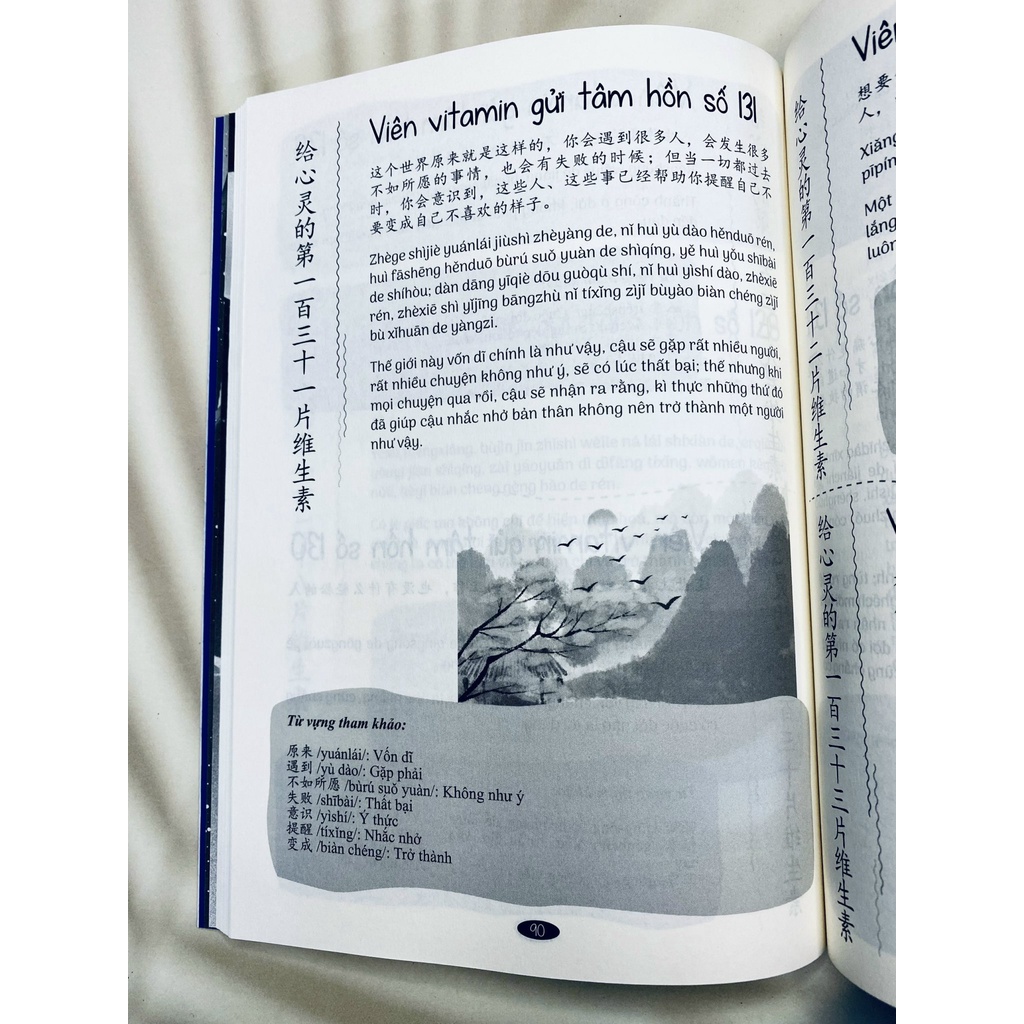 Viên vitamin gửi tâm hồn số 131
给心灵的第一百三十一片维生素
这个世界原来就是这样的，你会遇到很多人，会发生很多
不如所愿的事情，也会有失败的时候；但当一切都过去
时，你会意识到，这些人、这些事已经帮助你提醒自己不
要变成自己不喜欢的样子。
Zhège shìjiè yuánlái jiùshì zhèyàng de, nǐ huì yù dào hěnduō rén,
huì fāshēng hěnduō bùrú suǒ yuàn de shìqíng, yě huì yǒu shībài
de shíhòu; dàn dāng yīqiè dōu guòqù shí, nǐ huì yìshí dào, zhèxiē
rén, zhèxiē shì yǐjīng bāngzhù nǐ tíxǐng zìjǐ bùyào biàn chéng zìjǐ
bù xǐhuān de yàngzi.
Thế giới này vốn dĩ chính là như vậy, cậu sẽ gặp rất nhiều người,
rất nhiều chuyện không như ý, sẽ có lúc thất bại; thế nhưng khi
mọi chuyện qua rồi, cậu sẽ nhận ra rằng, kì thực những thứ đó
đã giúp cậu nhắc nhở bản thân không nên trở thành một người
như vậy.
Từ vựng tham khảo:
原来 /yuánlái/: Vốn dĩ
遇到 /yù dào/: Gặp phải
不如所愿 /bùrú suǒ yuàn/: Không như ý
失败 /shībài/: Thất bại
意识 /yìshí/: Ý thức
提醒 /tíxǐng/: Nhắc nhở
变成 /biàn chéng/: Trở thành
90
给心灵的第一百三十二片维生素
想要
人，
Xiǎng
pīpíng
Một
lắng
luôn
给心灵的第一百三十三片维生素